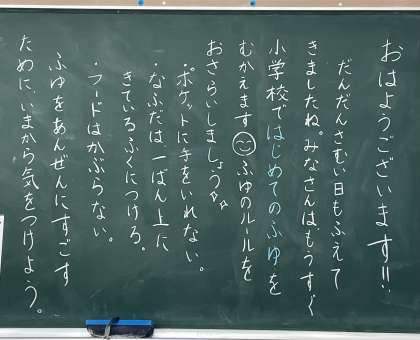 おはようございます!!
だんだんさむい日もふえて
きましたね。みなさんはもうすぐ
小学校ではじめてのふゆを
むかえます☺ふゆのルールを
おさらいしましょう✨
・ポケットに手をいれない。
・なふだは一ばん上に
きているふくにつける。
・フードはかぶらない。
ふゆをあんぜんにすごす
ために、いまから気をつけよう。